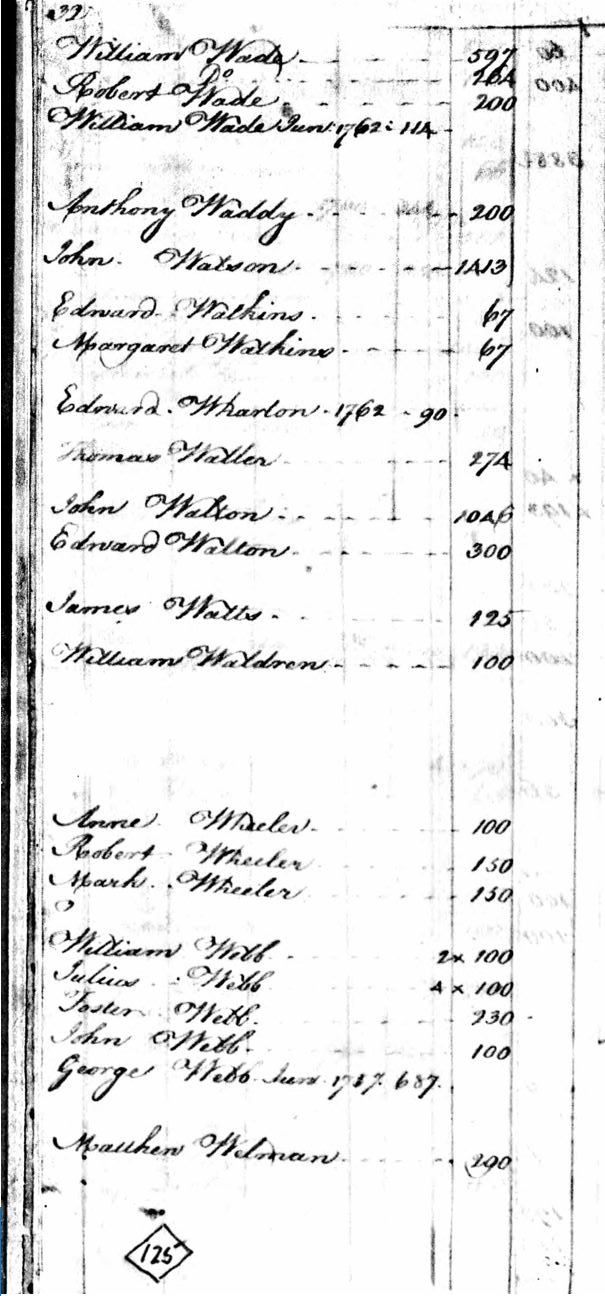 William Wade 597
Do 264
Robert Wade 200
William Wade Jun: 1762: 114
Anthony Waddy 200
John Watson 1413
Edward Watkins 67
Margaret Watkins 67
Edward Wharton 1762 90
Thomas Waller 274
John Walton 1046
Edward Walton 300
James Watts 125
William Waldren 100
Anne Wheeler 100
Robert Wheeler 150
Mark Wheeler 150
William Webb 2 x 100
Julius Webb 4 x 100
Foster Webb 230
John Webb 100
George Webb Jun: 687
Matthew Welman 290
125